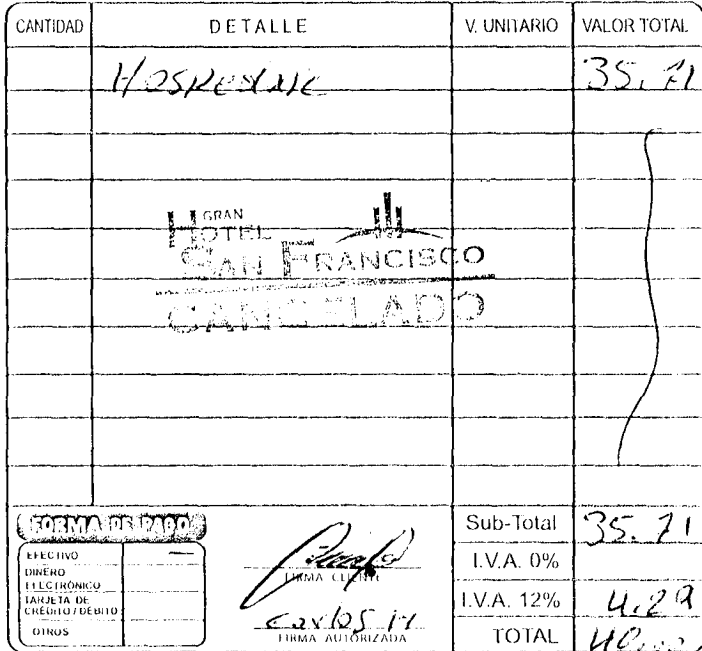 CANTIDAD DETALLE V. UNITARIO VALOR TOTAL
Hospedaje 35.71
GRAN
HOTEL
SAN FRANCISCO
CANCELADO
FORMA DE PAGO
EFECTIVO —
DINERO
ELECTRÓNICO
TARJETA DE
CRÉDITO / DÉBITO
OTROS
FIRMA CLIENTE
Carlos M
FIRMA AUTORIZADA
Sub-Total 35.71
I.V.A. 0%
I.V.A. 12% 4.29
TOTAL